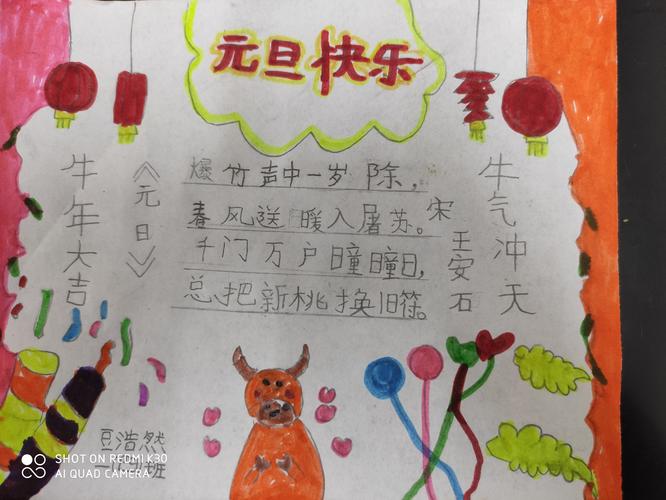 元旦快乐
牛年大吉
《元日》
爆竹声中一岁除，
春风送暖入屠苏。
千门万户曈曈日，
总把新桃换旧符。
宋
王安石
牛气冲天
豆浩然
SHOT ON REDMI K30
AI QUAD CAMERA